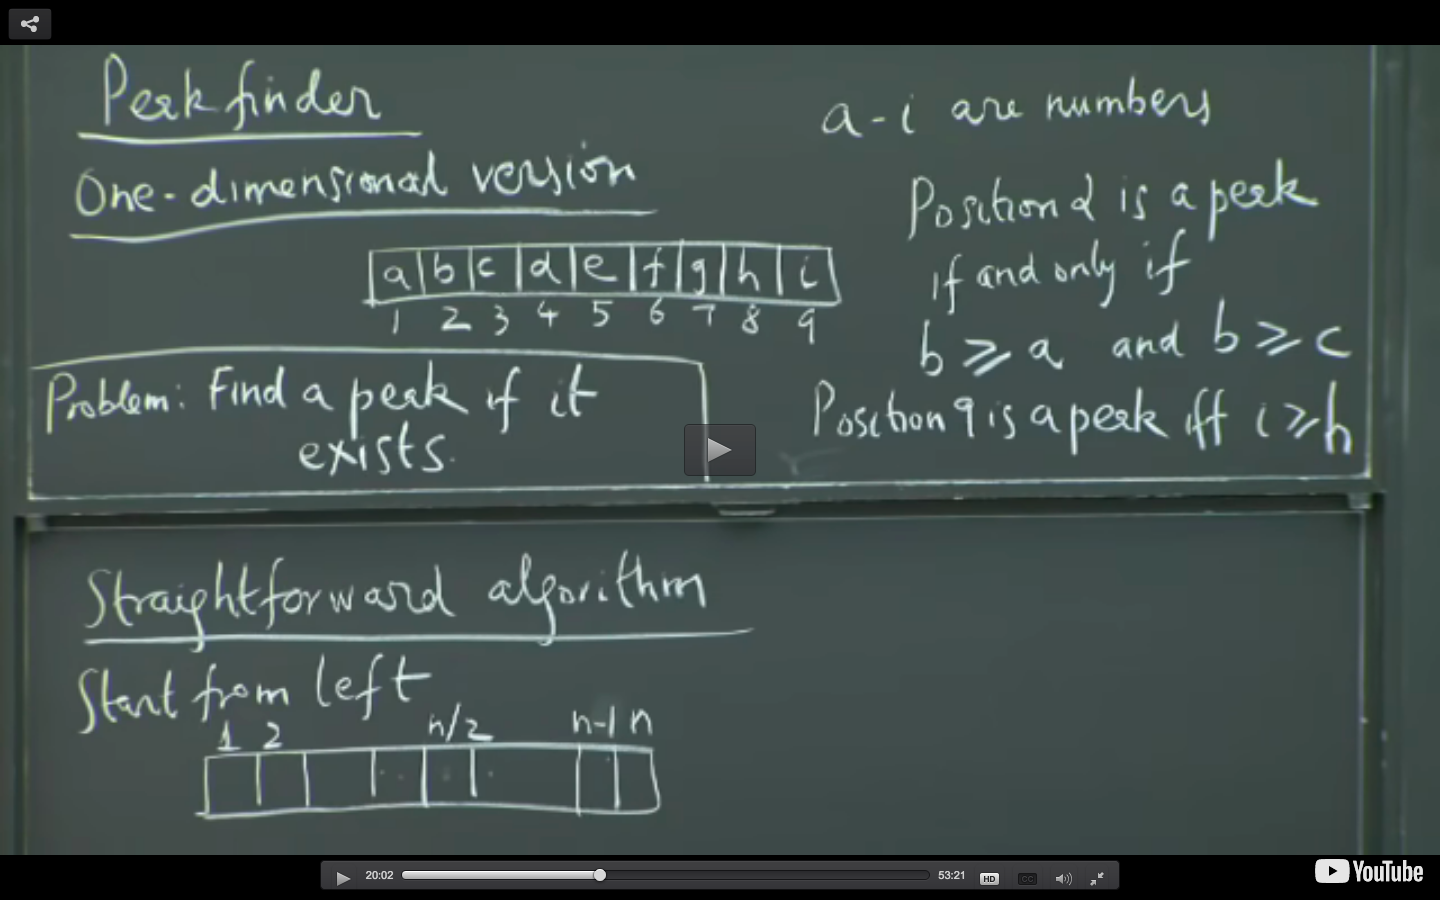 Peak finder
One-dimensional version
a b c d e f g h i
1 2 3 4 5 6 7 8 9
Problem: Find a peak if it
exists.
a-i are numbers
Position 2 is a peak
if and only if
b ≥ a and b ≥ c
Position 9 is a peak iff i ≥ h
Straightforward algorithm
Start from left
1 2 n/2 n-1 n
20:02 53:21 HD CC YouTube